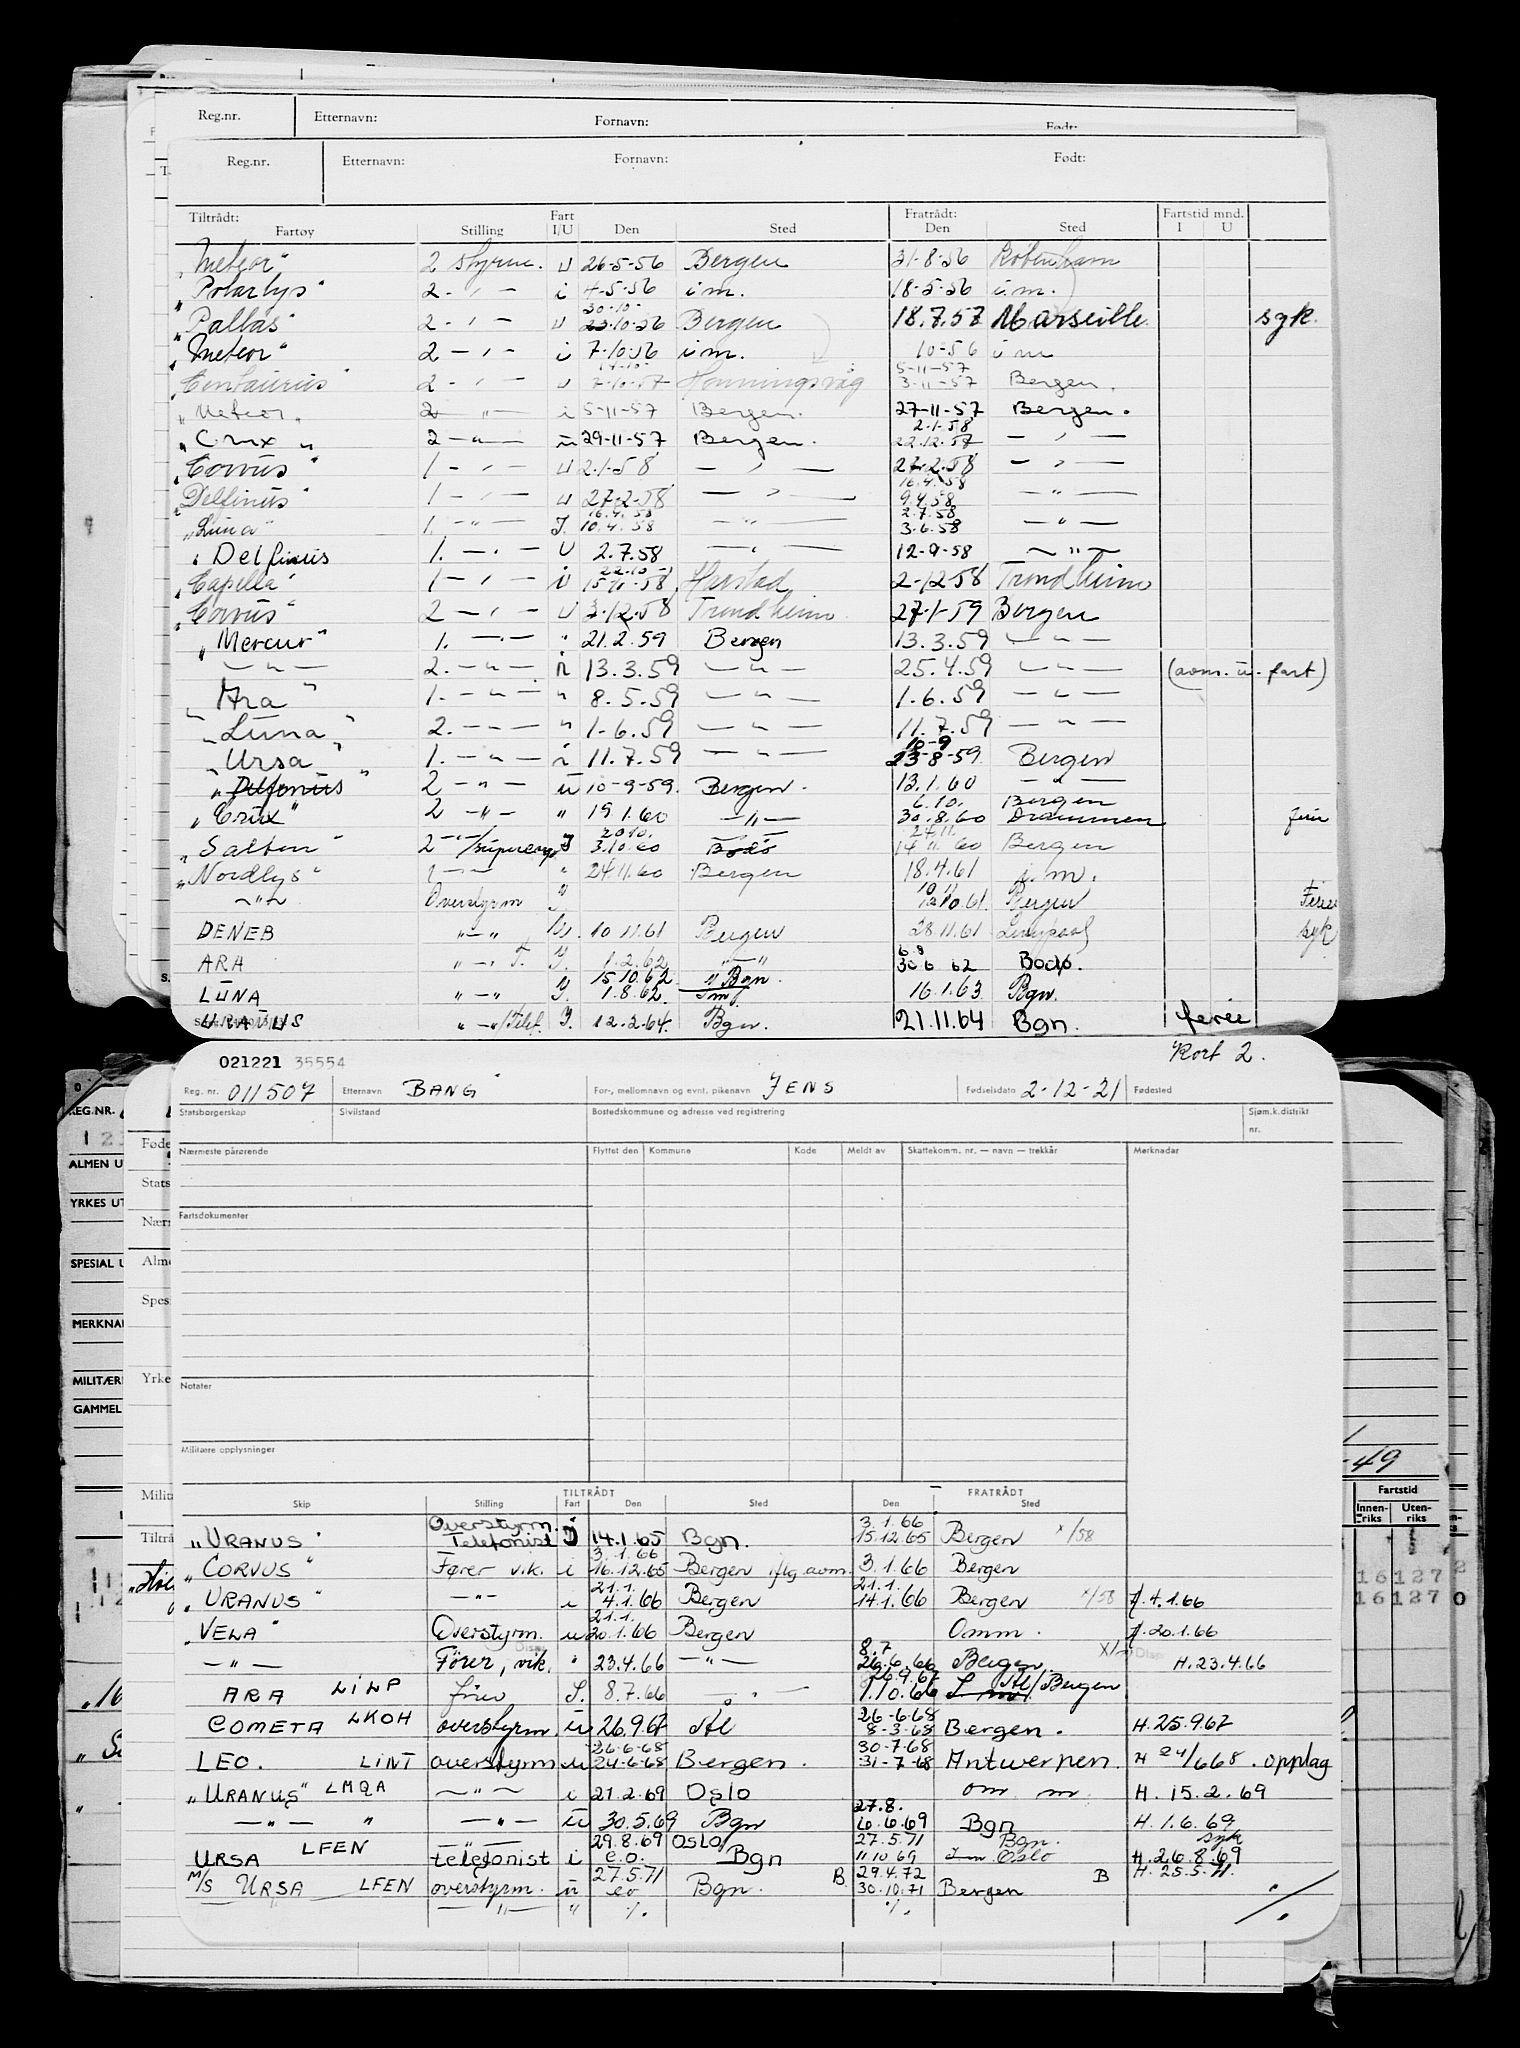 Reg.nr. Etternavn: Fornavn: Født:
Reg.nr. Etternavn: Fornavn: Født:
Tiltrådt: Fart Fratrådt: Fartstid mnd.
Fartøy Stilling I/U Den Sted Den Sted I U
"Meteor" 2 styrm. u 26-5-56 Bergen 31-8-56 København
"Polarlys" 2 - " - i 4-5-56 i.m. 18-5-56 i.m.
30-10-
"Pallas" 2 - " - u 23.10-56 Bergen 18.7.57 Marseille syk.
"Meteor" 2 - " - i 7-10-56 i.m. 10-56 i m
14-10- 5-11-57
"Centaurus" 2 - " - u 7-10-57 Honningsvåg 3-11-57 Bergen.
"Meteor" 2 " - i 5-11-57 Bergen. 27-11-57 Bergen.
2-1-58
"Crux" 2 - " - u 29-11-57 Bergen. 22.12.57 - " -
"Corvus" 1 - " - u 2-1-58 - " - 27-2-58 - " -
16.4.58
"Delfinus" 1 - " - u 27-2-58 - " - 9.4.58 - " -
16.4.58 2.7.58
"Luna" 1. - " - I. 10.4.58 - " - 3.6.58 - " -
"Delfinus 1. - " - U 2.7.58 - " - 12-9-58 - " -
22-10-
"Capella" 1 - " - i 15-11-58 Harstad 2-12-58 Trondheim
"Corvus" 2 - " - u 3-12-58 Trondheim 27-1-59 Bergen
"Mercur" 1. - " - " 21.2.59 Bergen 13.3.59 - " -
- " - 2. - " - i 13.3.59 - " - 25.4.59 - " - (avm. u. fart)
"Ara" 1. - " - " 8.5.59 - " - 1.6.59 - " -
"Luna" 2. - " - " 1-6.59 - " - 11.7.59 - " -
10-9
"Ursa" 1. - " - i 11.7.59 - " - 23-8-59. Bergen
"Delfinus" 2 - " - u 10-9-59. Bergen. 13.1.60 - " -
6.10. Bergen
"Crux" 2 - " - " 19 1.60 - " - 30.8.60 Drammen ferie
20.10. 24.11.
"Salten" 2 - " - /supercargo I 3.10.60 Bodø 14.11.60 Bergen
"Nordlys" 2 - " - " 24.11.60 Bergen 18.4.61 i.m.
10 11
- " - Overstyrm I. 10.61. Bergen Ferie
DENEB " - " U. 10 11.61 Bergen 28.11.61 Liverpool syk
6.8
ARA " - " T. I. 1.2.62 " - " 30 6 62 Bodø.
15.10.62 " Bgn.
LUNA " - " I. 1.8.62. Im. 16.1.63. Bgn.
URANUS " - " /Telef. I. 12.2.64. Bgn. 21.11.64 Bgn. ferie
Kort 2.
021221 35554
Reg. nr. 011507 Etternavn BANG For-, mellomnavn og evnt. pikenavn JENS Fødselsdato 2-12-21 Fødested
Statsborgerskap Sivilstand Bostedskommune og adresse ved registrering Sjøm.k.distrikt
nr.
Nærmeste pårørende Flyttet den Kommune Kode Meldt av Skattekomm. nr. — navn — trekkår Merknader
Fartsdokumenter
Notater
Militære opplysninger
TILTRÅDT FRATRÅDT
Skip Stilling Fart Den Sted Den Sted
Overstyrm. 3.1.66
"URANUS" Telefonist I 14.1.65 Bgn. 15.12.65 Bergen x/58
3.1.66
"CORVUS" Fører vik. i 16.12.65 Bergen iflg. avm. 3.1.66 Bergen
21.1. 21.1.
"URANUS" - " - i 4.1.66 Bergen 14.1.66 Bergen x/58 H.4.1.66
21.1.
"VELA" Overstyrm. u 20.1.66 Bergen Omm. H.20.1.66
8.7
- " - Fører, vik. " 23.4.66 - " - 26.6.66 Bergen. H.23.4.66
26.9.67 Atl/Bergen
ARA LILP fører I. 8.7.66 - " - 1.10.66 I m
26-6-68
COMETA LKOH overstyrm. u 26.9.67 Atl 8-3-68 Bergen. H.25.9.67
26-6-68 30-7-68
LEO. LINT overstyrm u 24-6-68 Bergen. 31-7-68 Antwerpen. H 24/668. opplag
"URANUS" LMQA - " - i 21.2.69 Oslo om m. H. 15.2.69
27.8.
- " - " - " - u 30.5.69 Bgn 6.6.69 Bgn H.1.6.69
29.8.69 Oslo/ 27.5.71 Bgn. syk
URSA LFEN telefonist i e.o. Bgn 11 10 69 I m Oslo H.26.8.69
27.5.71 29.4.72 H. 25.5.71.
M/S URSA LFEN overstyrm. u eo Bgn. B 30.10.71 Bergen B
- " - " ./. ./. ./.
REG.NR.
ALMEN U
YRKES UT
SPESIAL U
MERKNA
MILITÆR
GAMMEL
Føde
Stats
Nærm
Alme
Spesi
Yrke
Milit
Tiltrå
-49
Fartstid
Innen-riks Uten-riks
16127
16127 0